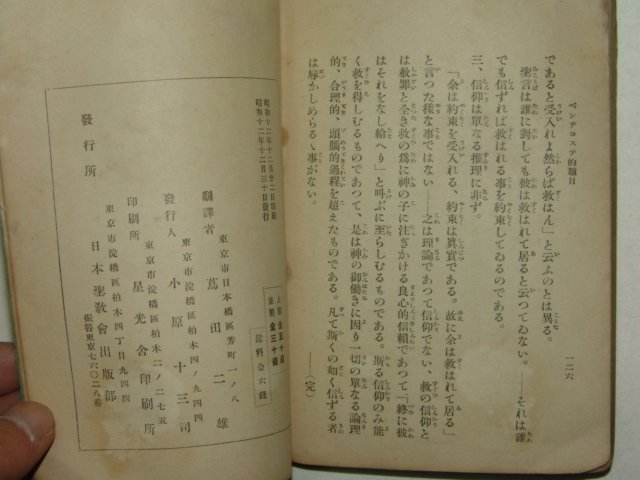 ペンテコステ的題目
一二六
であると受入れよ然らば救はん」と云ふのとは異る。
聖言は誰に對しても彼は救はれて居ると云つてゐない。――それは誰
でも信ずれば救はれる事を約束してゐるのである。
三、信仰は單なる推理に非ず。
「余は約束を受入れる、約束は眞實である。故に余は救はれて居る」
と言つた樣な事ではない――之は理論であつて信仰でない、救の信仰と
は救罪と全き救の爲に神の子に注ぎかける良心的信頼であつて「終に彼
はそれをなし給へり」と叫ぶに至らしむるものである。斯る信仰のみ能
く救を得しむるものであつて、是は神の御働きに因り一切の單なる論理
的、合理的、頭腦的過程を超えたものである。凡て斯くの如く信ずる者
は辱かしめらるゝ事がない。
――(完)
昭和十二年十二月廿二日印刷
昭和十二年十二月三十日發行
金五十錢
並製 金三十錢
送料 金六錢
東京市日本橋區芳町一ノ八
飜譯者 蔦田二雄
東京市淀橋區柏木四ノ九四四
發行人 小原十三司
東京市淀橋區柏木二ノ二七五
印刷所 星光舍印刷所
東京市淀橋區柏木四丁目九四四
發行所 日本聖敎會出版部
振替東京七六〇二八番